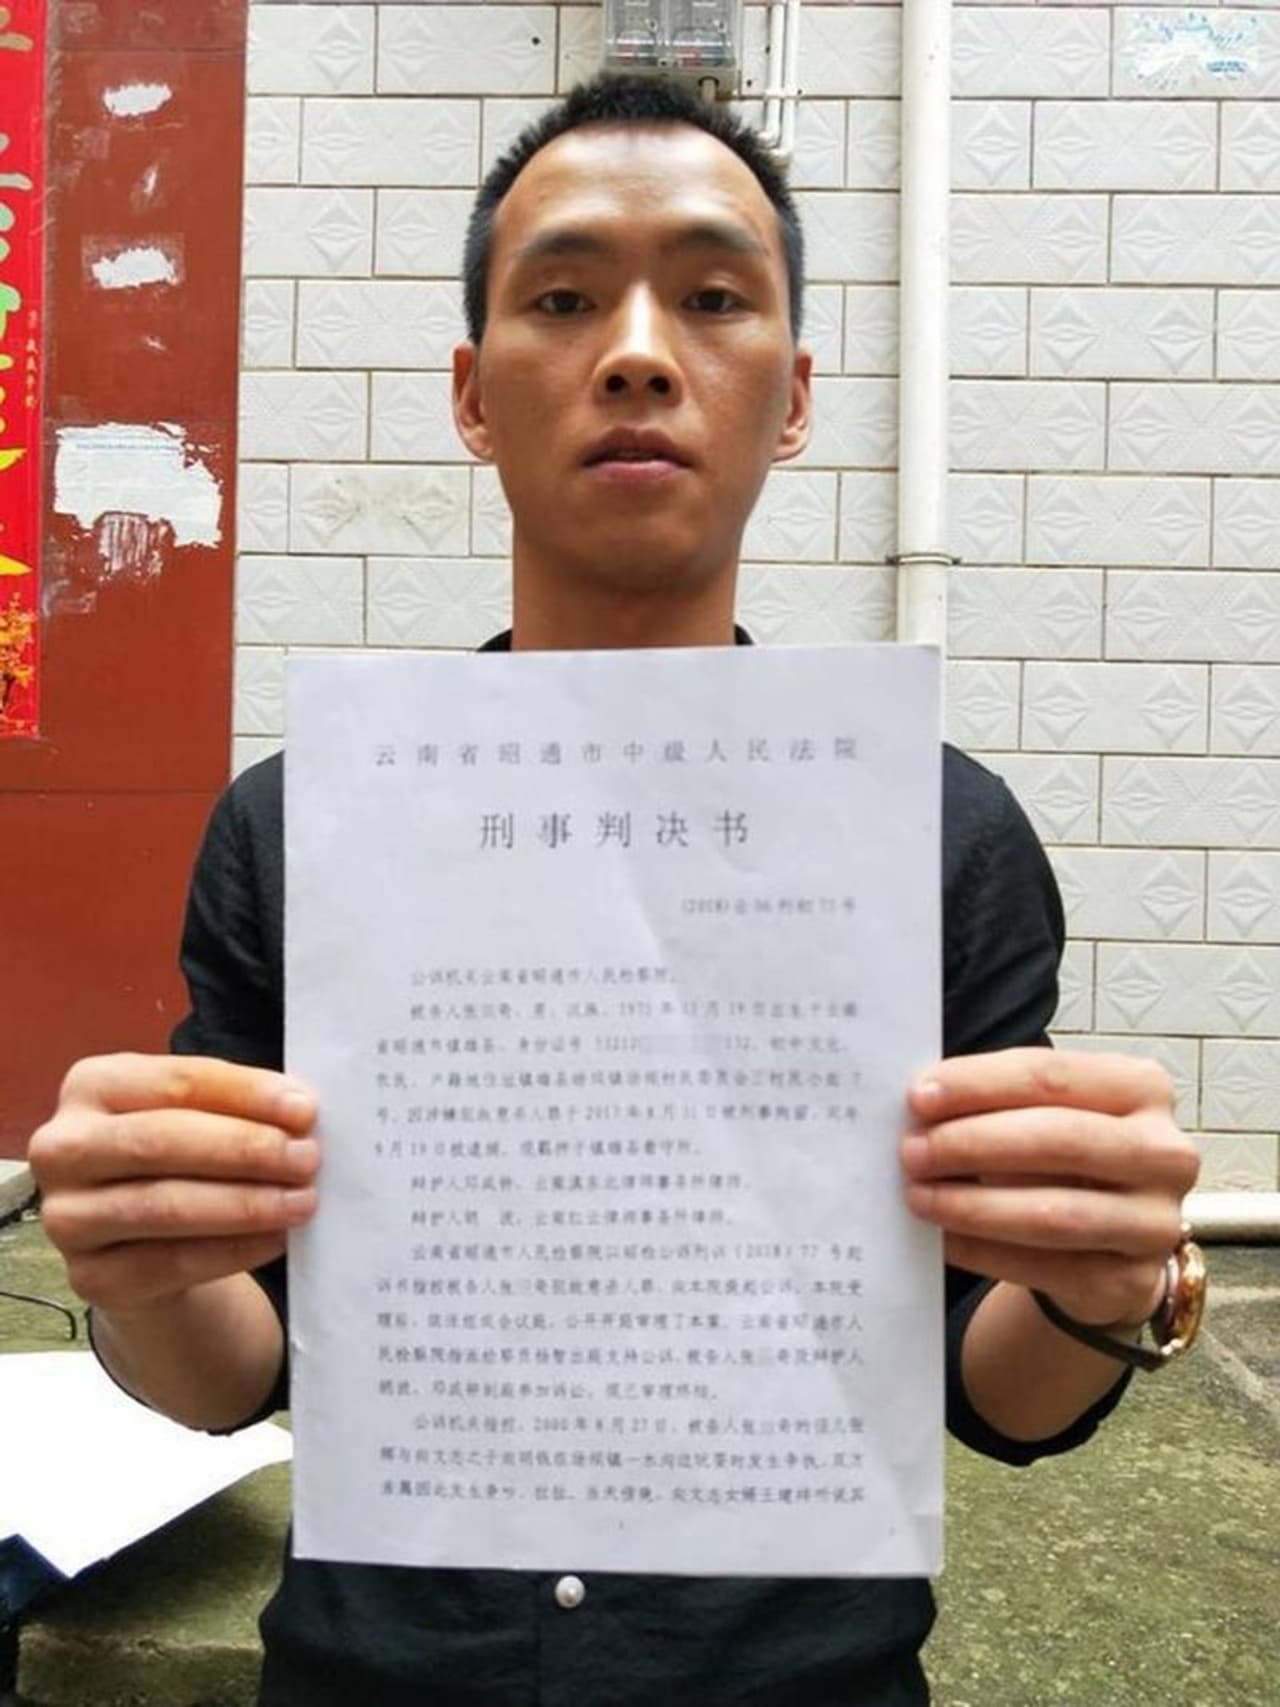 云南省昭通市中级人民法院
刑事判决书
(2018)云06刑初77号
公诉机关云南省昭通市人民检察院。
被告人张 奇，男，汉族，1975年 月19日出生于云南
省昭通市镇雄县，身份证号53212 132，初中文化，
农民，户籍地住址镇雄县 村民委员会 村民小组7
号。因涉嫌犯故意杀人罪于2017年8月31日被刑事拘留，同年
9月19日被逮捕。现羁押于镇雄县看守所。
辩护人邓 ，云南滇东北律师事务所律师。
辩护人胡 波，云南红云律师事务所律师。
云南省昭通市人民检察院以昭检公诉刑诉(2018)77号起
诉书指控被告人张 奇犯故意杀人罪，向本院提起公诉。本院受
理后，依法组成合议庭，公开开庭审理了本案。云南省昭通市人
民检察院指派检察员杨智出庭支持公诉，被告人张 奇及辩护人
胡波、邓 到庭参加诉讼。现已审理终结。
公诉机关指控，2000年8月27日，被告人张 奇的侄儿张
与向文志之子向明钱在场坝镇一水沟边玩耍时发生争执，双方
亲属因此发生争吵、拉扯。当天傍晚，向文志女婿王建 听说其
1